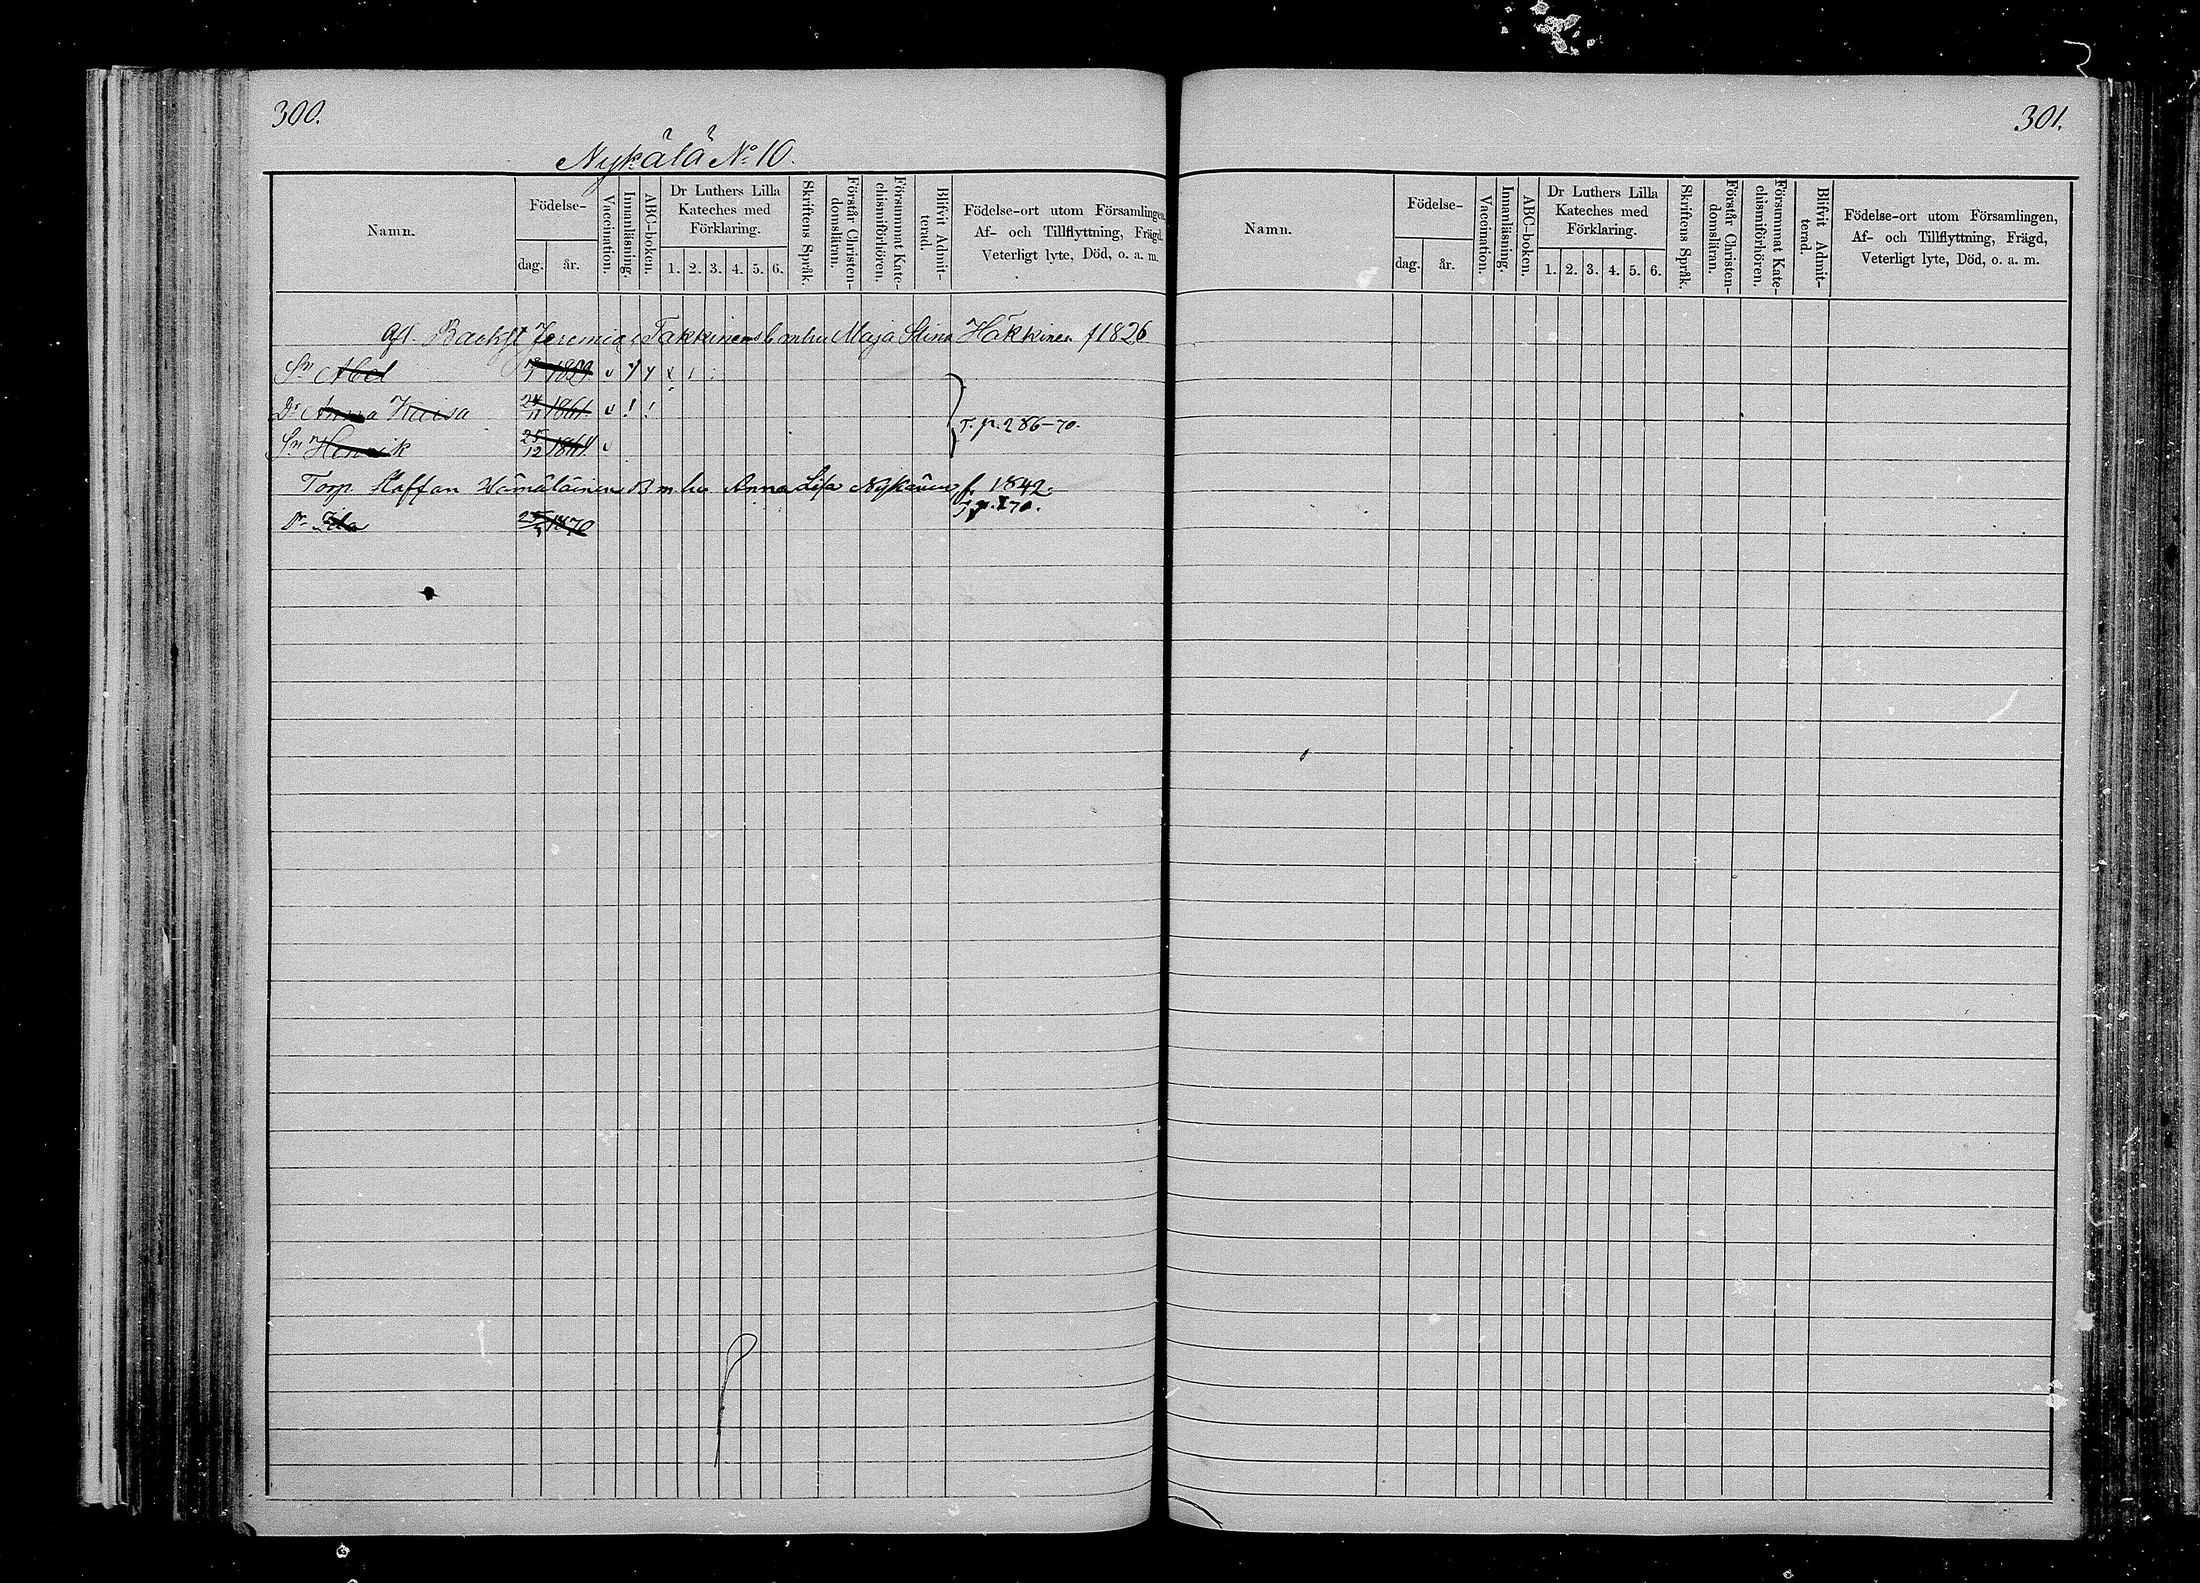 300.
Nykälä No 10.
Namn.
Födelse-
dag.
år.
Vaccination.
Innanläsning.
ABC-boken.
Dr Luthers Lilla
Kateches med
Förklaring.
1. 2. 3. 4. 5. 6.
Skriftens Språk.
Förstår Christen-
domslänn.
Försummat Kate-
chismiförhören.
Blifvit Admit-
terad.
Födelse-ort utom Församlingen,
Af- och Tillflyttning, Frägd,
Veterligt lyte, Död, o. a. m.
Jeremias Takkinens Maja Stina Häkkinen f 1826
Sn Abel
Dr Anna 24/11 1861
Sn Henrik 25/12 1864
T. p. 286-70.
Torp. Staffan Hämäläinen B m hu Anna Lisa Nykänen f. 1842.
Dr Ida 1870
301.
Namn.
Födelse-
dag.
år.
Vaccination.
Innanläsning.
ABC-boken.
Dr Luthers Lilla
Kateches med
Förklaring.
1. 2. 3. 4. 5. 6.
Skriftens Språk.
Förstår Christen-
domsläran.
Försummat Kate-
chismförhören.
Blifvit Admit-
terad.
Födelse-ort utom Församlingen,
Af- och Tillflyttning, Frägd,
Veterligt lyte, Död, o. a. m.